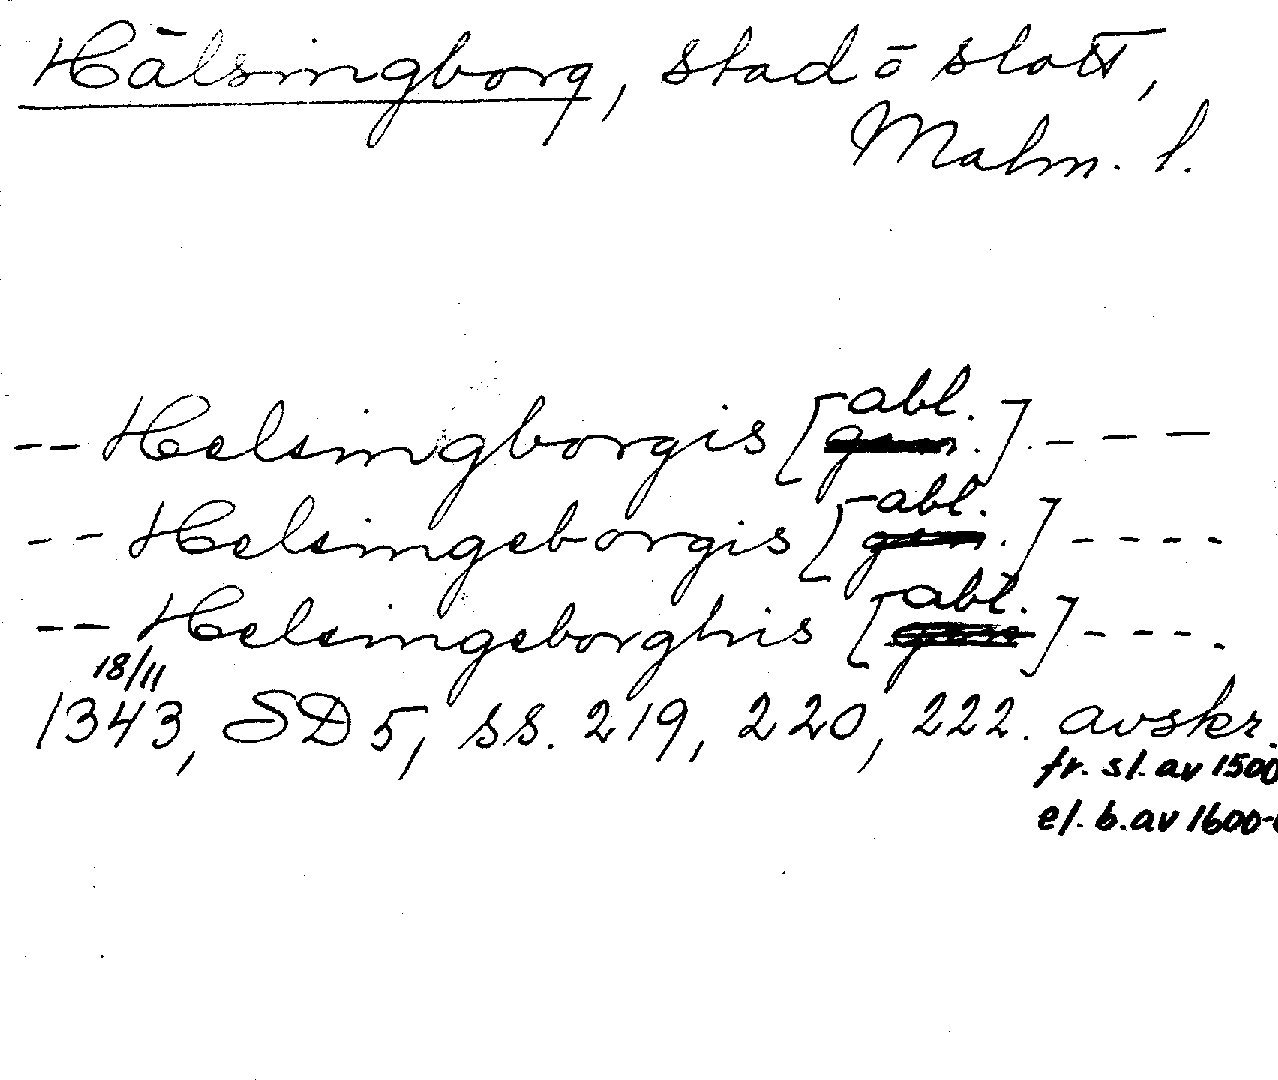 Hälsingborg, stad o slott,
Malm. l.
-- Helsingborgis [abl.] ---
-- Helsingeborgis [abl.] ----
-- Helsingeborghis [abl.] ----
18/11
1343, SD 5, ss. 219, 220, 222. avskr.
fr. sl. av 1500
el. b. av 1600-